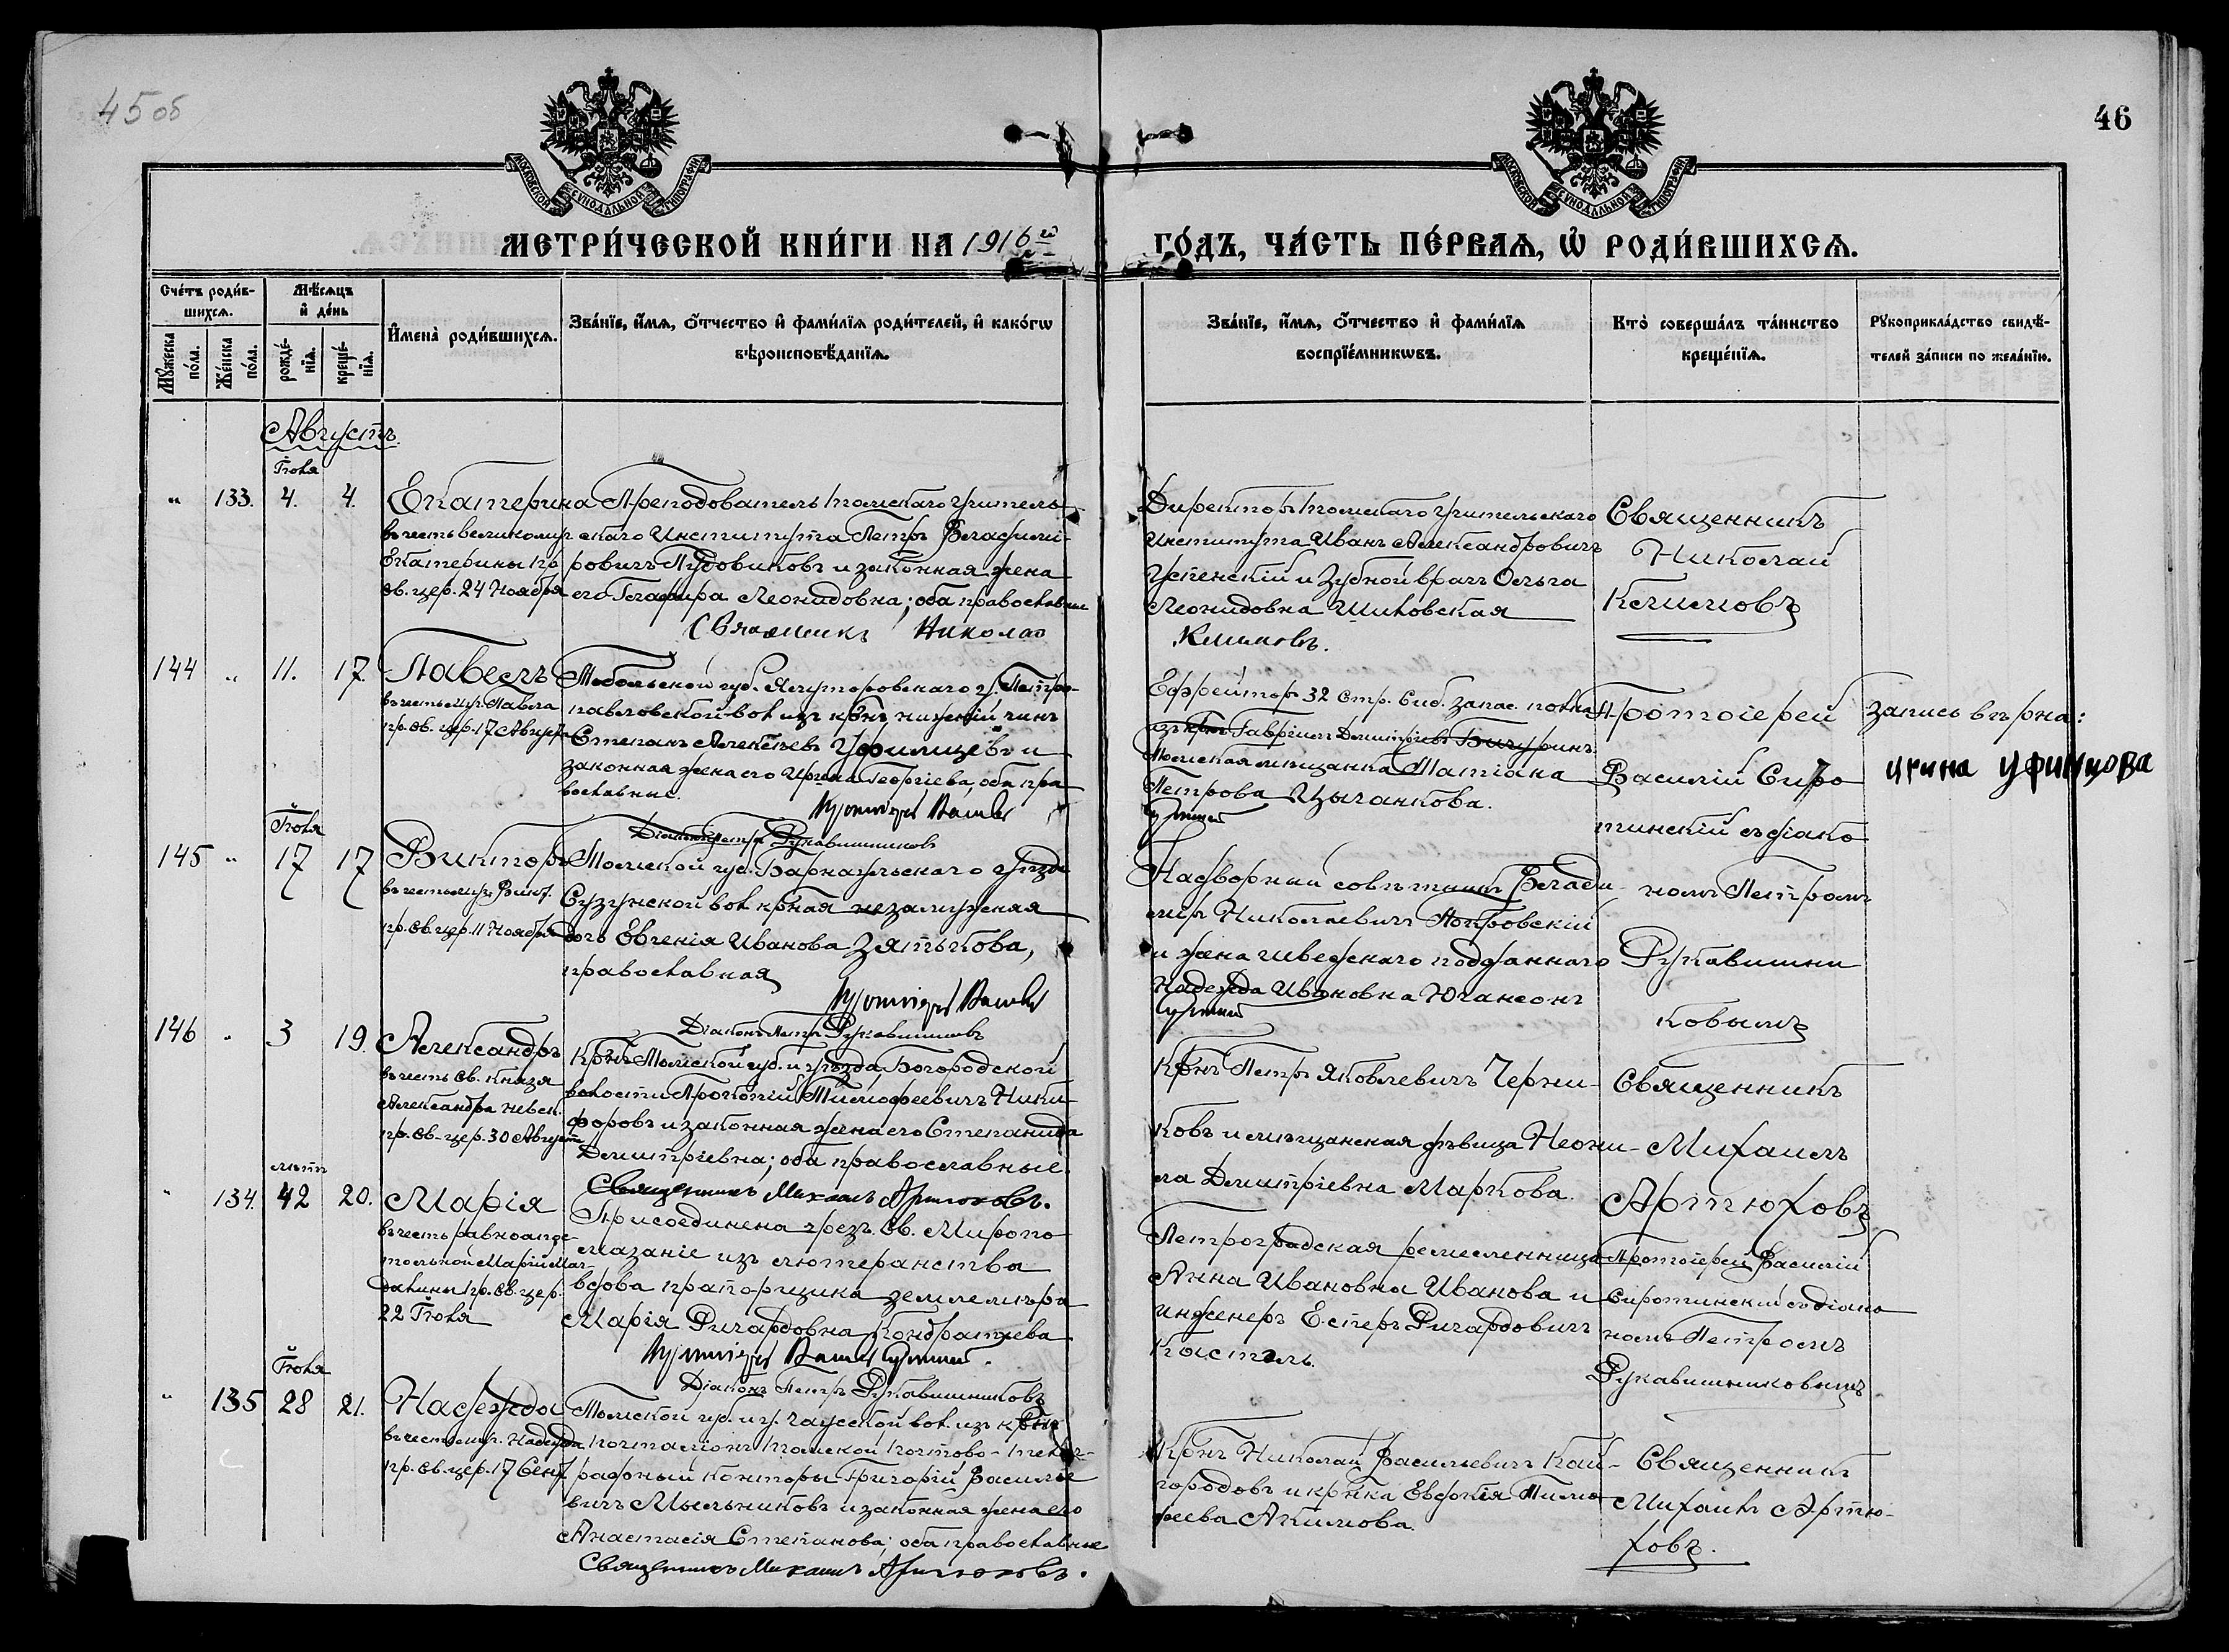 45 об
46
МОСКОВСКОЙ СѴНОДАЛЬНОЙ ТИПОГРАФІИ
МОСКОВСКОЙ СѴНОДАЛЬНОЙ ТИПОГРАФІИ
МЕТРИ́ЧЕСКОЙ КНИ́ГИ НА 1916 й
ГО́ДЪ, ЧА́СТЬ ПЕ́РВАѦ, Ѿ РОДИ́ВШИХСѦ.
Сче́тъ роди́в-
шихсѧ.
Мѣ́сѧцъ
и҆ де́нь
Мꙋ́жеска
по́ла.
Же́нска
по́ла.
рожде́-
нїѧ.
креще́-
нїѧ.
И҆мена̀ роди́вшихсѧ.
Зва́нїе, и҆́мѧ, ѻ҆́тчество и҆ фами́лїѧ роди́телей, и҆ како́гѡ
вѣроисповѣ́данїѧ.
Зва́нїе, и҆́мѧ, ѻ҆́тчество и҆ фами́лїѧ
воспрїе́мникѡвъ.
Кто̀ соверша́лъ та́инство
креще́нїѧ.
Рꙋкоприкла́дство свидѣ́-
телей за́писи по жела́нїю.
Августъ.
Іюля
" 133. 4. 4. Екатерина
въ честь великомуч
Екатерины пр
св. цер. 24 Ноября
Преподователь Томскаго Учитель-
скаго Института Петръ Владими-
ровичъ Пудовиковъ и законная жена
его Глафира Леонидовна; оба православные
Священникъ Николай
Директоръ Томскаго Учительскаго
Института Иванъ Александровичъ
Успенскій и Зубной врачъ Ольга
Леонидовна Шиховская
Климовъ.
Священникъ
Николай
Климовъ
144 " 11. 17. Павелъ
въ честь муч. Павла
пр. св. цер. 17 Августа
Тобольской губ. Ялуторовскаго у. Петро-
павловской вол. изъ кр-нъ нижній чинъ
Степанъ Алексѣевъ Уфимцевъ и
законная жена его Ирина Георгіева, оба пра
вославные.
Протоіерей Василій
Діаконъ Петръ Рукавишниковъ
Ефрейторъ 32 Стр. Сиб. запас. полка
изъ кр-нъ Гавріилъ Димитріевъ Бичуринъ.
Томская мѣщанка Татіана
Петрова Цыганкова.
Протоіерей
Василій Сиро
тинскій съ діако
номъ Петромъ
Рукавишни
ковымъ
Запись вѣрна:
ирина уфимцова
Іюля
145 " 17 17 Викторъ
въ честь муч. Викт.
пр. св. цер. 11 Ноября
Томской губ. Барнаульскаго уѣзда
Сузунской вол. кр-ная незамужняя
дочь Евгенія Иванова Зятькова,
православная
Протоіерей Василій
Діаконъ Петръ Рукавишниковъ
Надворный совѣтникъ Влади-
міръ Николаевичъ
и жена шведскаго подданнаго
Надежда Ивановна Югансонъ
146 " 3 19. Александръ
въ честь св. Князя
Александра Невск.
пр. св. цер. 30 Августа
Кр-нъ Томской губ. и уѣзда, Богородской
волости Прокопій Тимофеевичъ Ники-
форовъ и законная жена его Степанида
Димитріевна; оба православные.
Священникъ Михаилъ Артюховъ.
Кр-нъ Петръ Яковлевичъ Черни-
ковъ и мѣщанская дѣвица Неони-
ла Димитріевна Маркова.
Священникъ
Михаилъ
Артюховъ
лѣтъ
" 134. 42 20. Марія
въ честь равноапос-
тольной Маріи Маг
далины пр. св. цер.
22 Іюля
Присоединена чрезъ св. Миропо
мазаніе изъ лютеранства
вдова прапорщика землемѣра
Марія Ричардовна Кондратьева
Протоіерей Василій
Діаконъ Петръ Рукавишниковъ
Петроградская ремесленница
Анна Ивановна Иванова и
инженеръ Естеръ Ричардовичъ
Протоіерей Василій
Сиротинскій съ діако
номъ Петромъ
Рукавишниковымъ
Іюля
" 135 28 21. Надежда
въ честь муч. Надежды
пр. св. цер. 17 Сент.
Томской губ. и у. Чаусской вол. изъ кр-нъ
почталіонъ Томской Почтово-Телег-
рафный конторы Григорій Василье
вичъ Мыльниковъ и законная жена его
Анастасія Степанова; оба православные
Священникъ Михаилъ Артюховъ.
Кр-нъ Николай Васильевичъ Кай-
городовъ и кр-нка Евфокія Тимо
феева Акимова.
Священникъ
Михаилъ Артю-
ховъ.